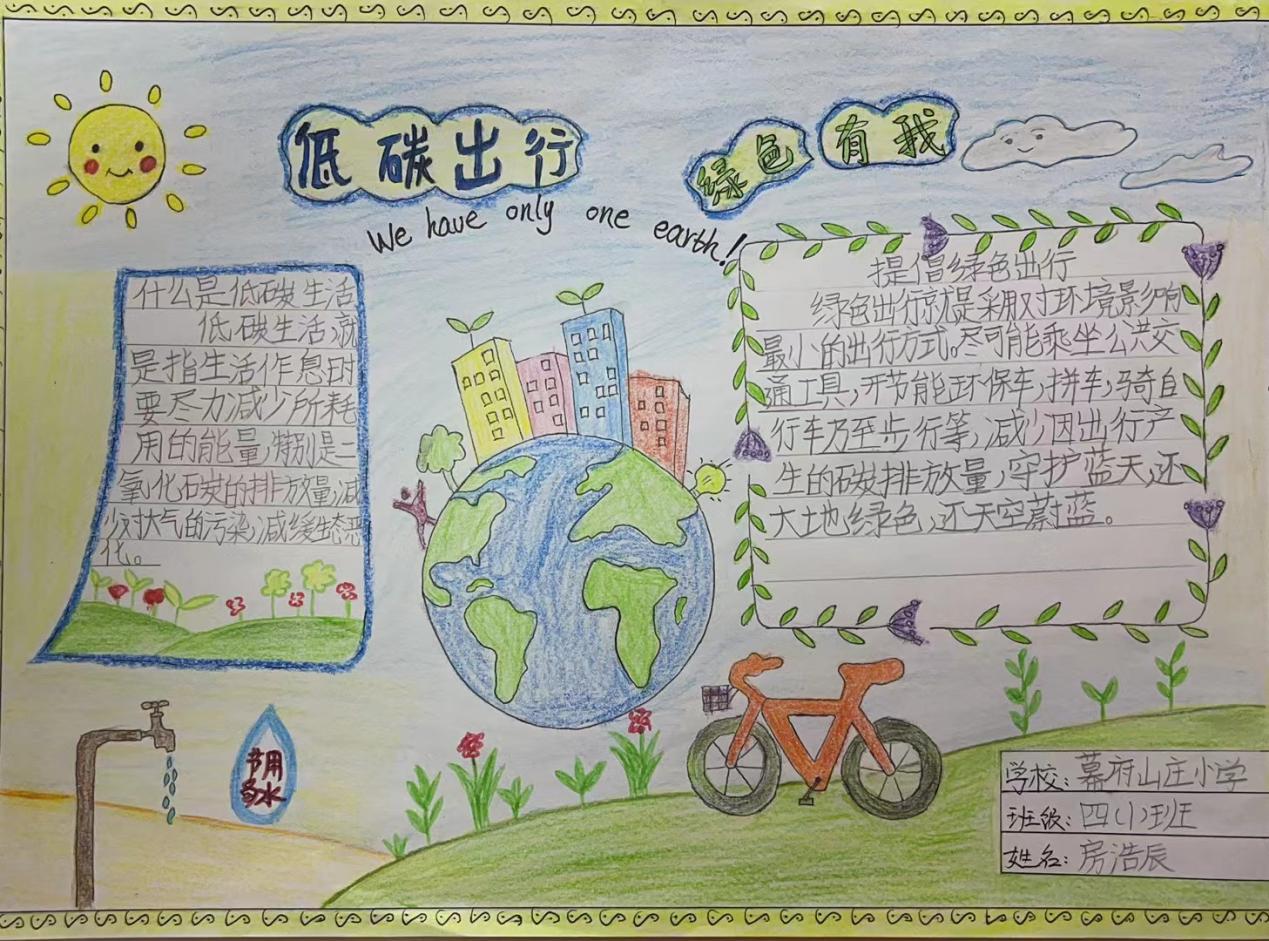 低碳出行
绿色有我
We have only one earth!
什么是低碳生活
低碳生活就
是指生活作息时
要尽力减少所耗
用的能量,特别是二
氧化碳的排放量,减
少对大气的污染,减缓生态恶
化。
提倡绿色出行
绿色出行就是采用对环境影响
最小的出行方式。尽可能乘坐公共交
通工具,开节能环保车,拼车,骑自
行车乃至步行等,减少因出行产
生的碳排放量,守护蓝天,还
大地绿色,还天空蔚蓝。
节用
水
学校:幕府山庄小学
班级:四(1)班
姓名:房浩辰